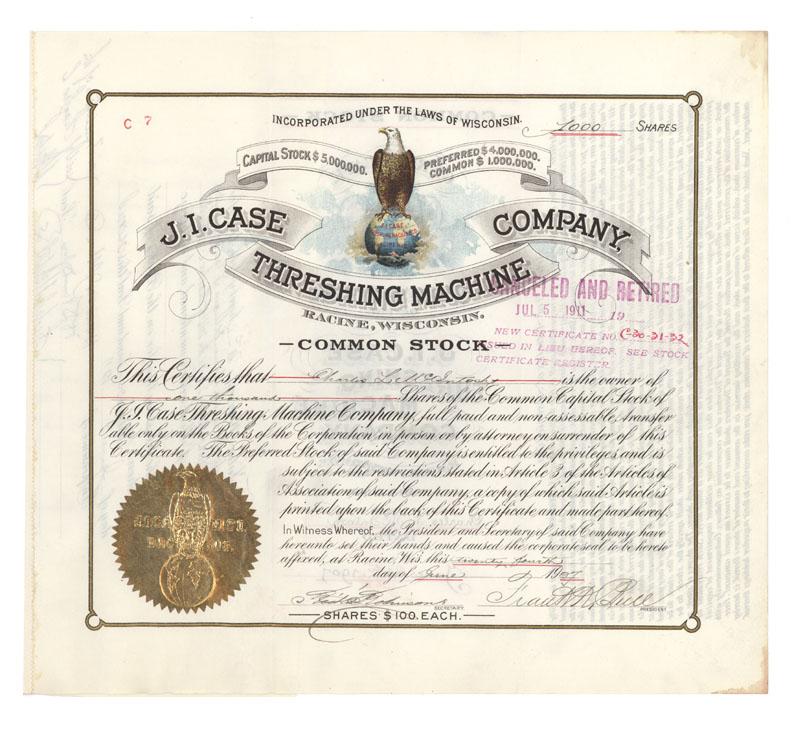 C 7
INCORPORATED UNDER THE LAWS OF WISCONSIN.
1000 SHARES
CAPITAL STOCK $5,000,000.
PREFERRED $4,000,000.
COMMON $1,000,000.
J.I. CASE
THRESHING MACHINE
COMPANY,
RACINE, WISCONSIN.
CANCELED AND RETIRED
JUL 5 1911 19
NEW CERTIFICATE NO. C-20-21-22
ISSUED IN LIEU HEREOF, SEE STOCK
CERTIFICATE REGISTER
COMMON STOCK
This Certifies that Charles L. McIntosh is the owner of
one thousand Shares of the Common Capital Stock of
J.I. Case Threshing Machine Company, full paid and non-assessable, transfer
able only on the Books of the Corporation in person or by attorney on surrender of this
Certificate. The Preferred Stock of said Company is entitled to the privileges and is
subject to the restrictions stated in Article 3 of the Articles of
Association of said Company, a copy of which said Article is
printed upon the back of this Certificate and made part hereof.
In Witness Whereof, the President and Secretary of said Company have
hereunto set their hands and caused the corporate seal to be hereto
affixed, at Racine, Wis. this twenty fourth
day of June 1907
SECRETARY.
Frank K Bull
PRESIDENT
SHARES $100. EACH.